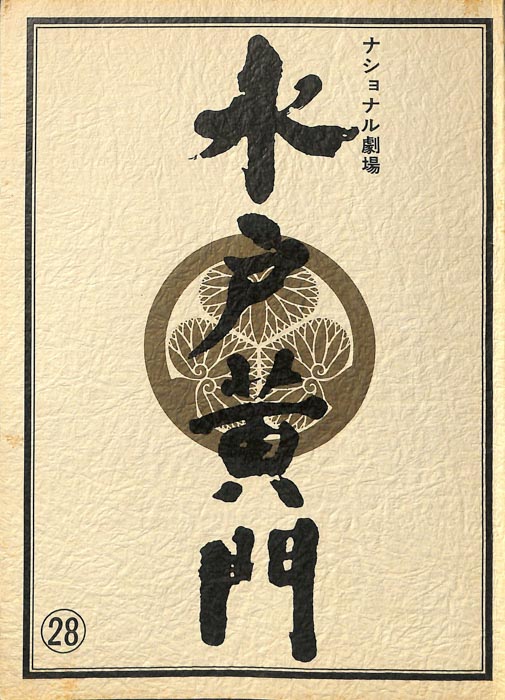 ナショナル劇場
水戸黄門
㉘